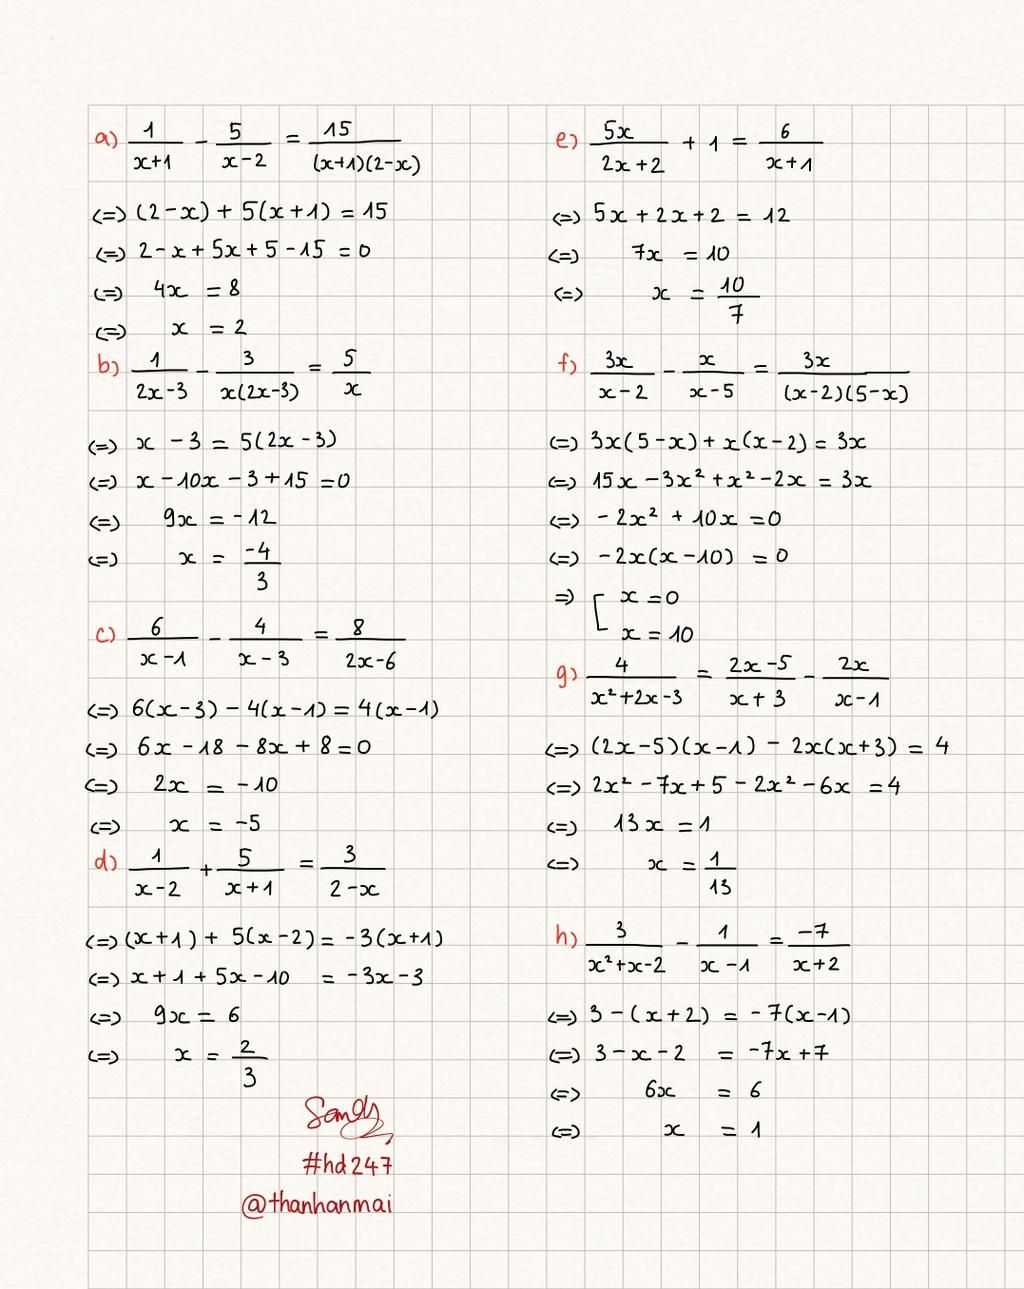 a) 1/(x+1) - 5/(x-2) = 15/((x+1)(2-x))
<=> (2-x) + 5(x+1) = 15
<=> 2-x+5x+5-15 = 0
<=> 4x = 8
<=> x = 2
b) 1/(2x-3) - 3/(x(2x-3)) = 5/x
<=> x - 3 = 5(2x-3)
<=> x - 10x - 3 + 15 = 0
<=> 9x = -12
<=> x = -4/3
c) 6/(x-1) - 4/(x-3) = 8/(2x-6)
<=> 6(x-3) - 4(x-1) = 4(x-1)
<=> 6x - 18 - 8x + 8 = 0
<=> 2x = -10
<=> x = -5
d) 1/(x-2) + 5/(x+1) = 3/(2-x)
<=> (x+1) + 5(x-2) = -3(x+1)
<=> x+1+5x-10 = -3x-3
<=> 9x = 6
<=> x = 2/3
Sandy
#hd247
@thanhanmai
e) 5x/(2x+2) + 1 = 6/(x+1)
<=> 5x + 2x + 2 = 12
<=> 7x = 10
<=> x = 10/7
f) 3x/(x-2) - x/(x-5) = 3x/((x-2)(5-x))
<=> 3x(5-x) + x(x-2) = 3x
<=> 15x - 3x² + x² - 2x = 3x
<=> -2x² + 10x = 0
<=> -2x(x-10) = 0
=> [ x = 0
x = 10
g) 4/(x²+2x-3) = (2x-5)/(x+3) - 2x/(x-1)
<=> (2x-5)(x-1) - 2x(x+3) = 4
<=> 2x² - 7x + 5 - 2x² - 6x = 4
<=> 13x = 1
<=> x = 1/13
h) 3/(x²+x-2) - 1/(x-1) = -7/(x+2)
<=> 3 - (x+2) = -7(x-1)
<=> 3-x-2 = -7x+7
<=> 6x = 6
<=> x = 1